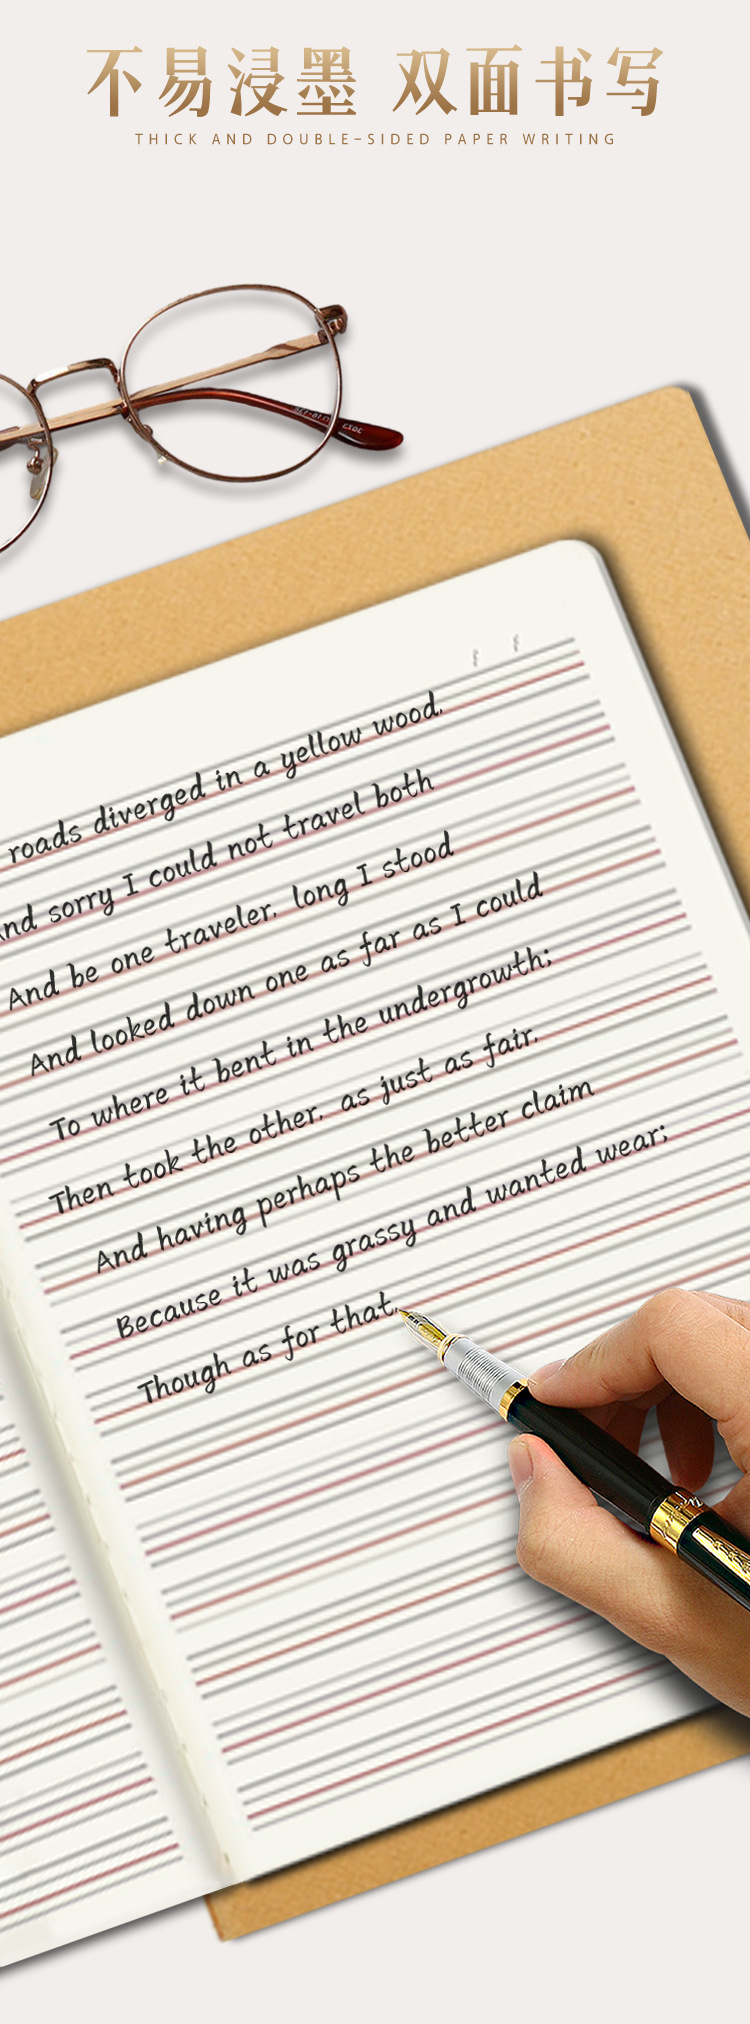 不易浸墨 双面书写
THICK AND DOUBLE-SIDED PAPER WRITING
roads diverged in a yellow wood.
And sorry I could not travel both
And be one traveler. long I stood
And looked down one as far as I could
To where it bent in the undergrowth;
Then took the other. as just as fair.
And having perhaps the better claim
Because it was grassy and wanted wear;
Though as for that.